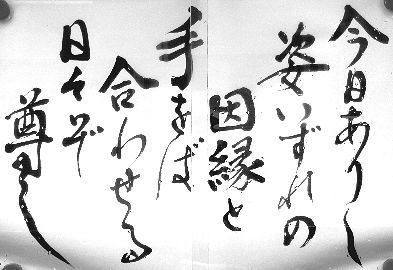 今日ありし
姿いずれの
因縁と
手をば
合わせる
日々ぞ
尊し